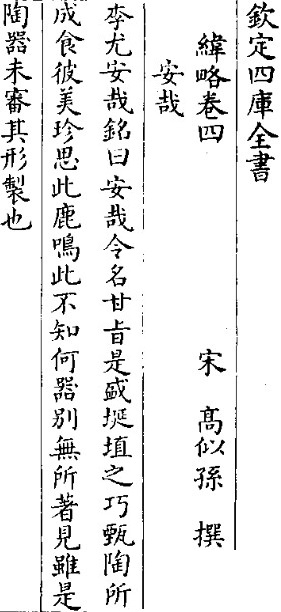 欽定四庫全書
緯略卷四　宋　高似孫　撰
安哉
李尤安哉銘曰安哉令名甘旨是盛埏埴之巧甄陶所
成食彼美珍思此鹿鳴此不知何器别無所著見雖是
陶器未審其形製也